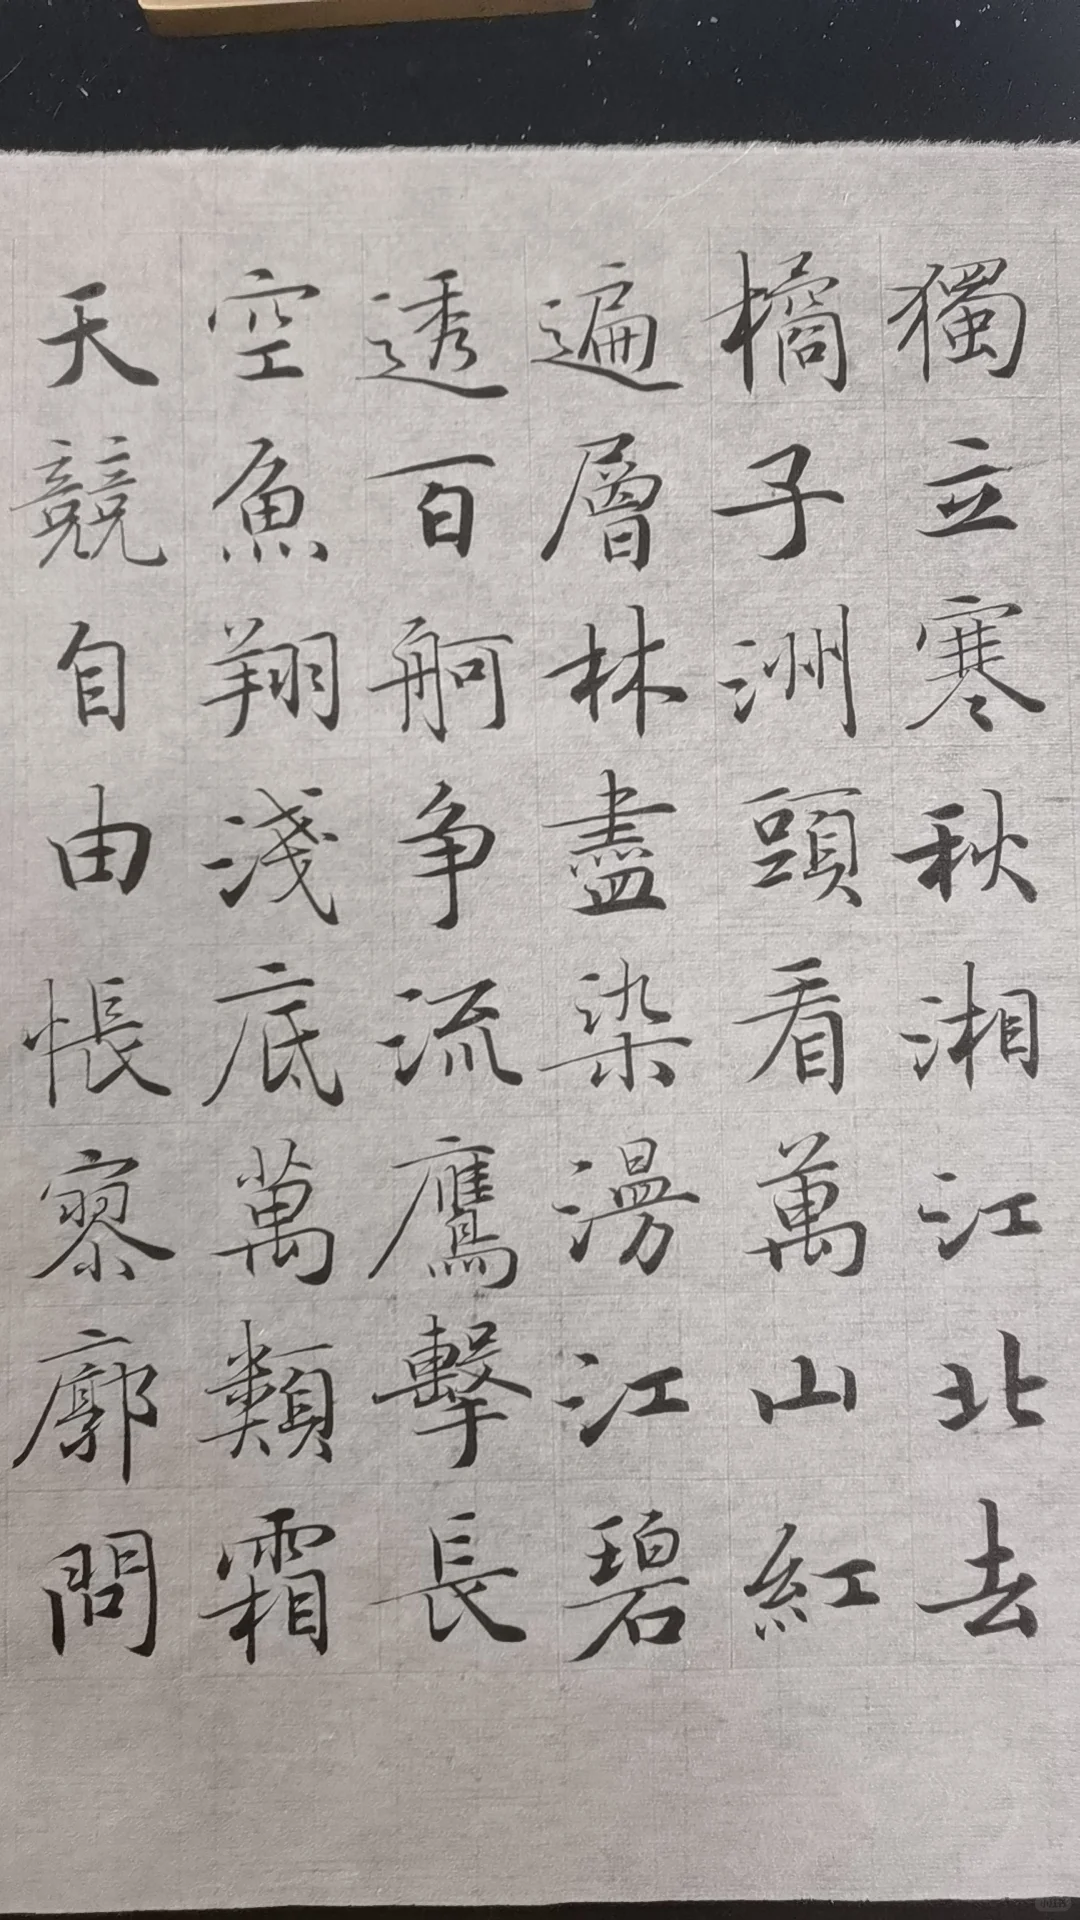 獨立寒秋湘江北去
橘子洲頭看萬山紅
遍層林盡染漫江碧
透百舸争流鷹擊長
空魚翔淺底萬類霜
天競自由悵寥廓問